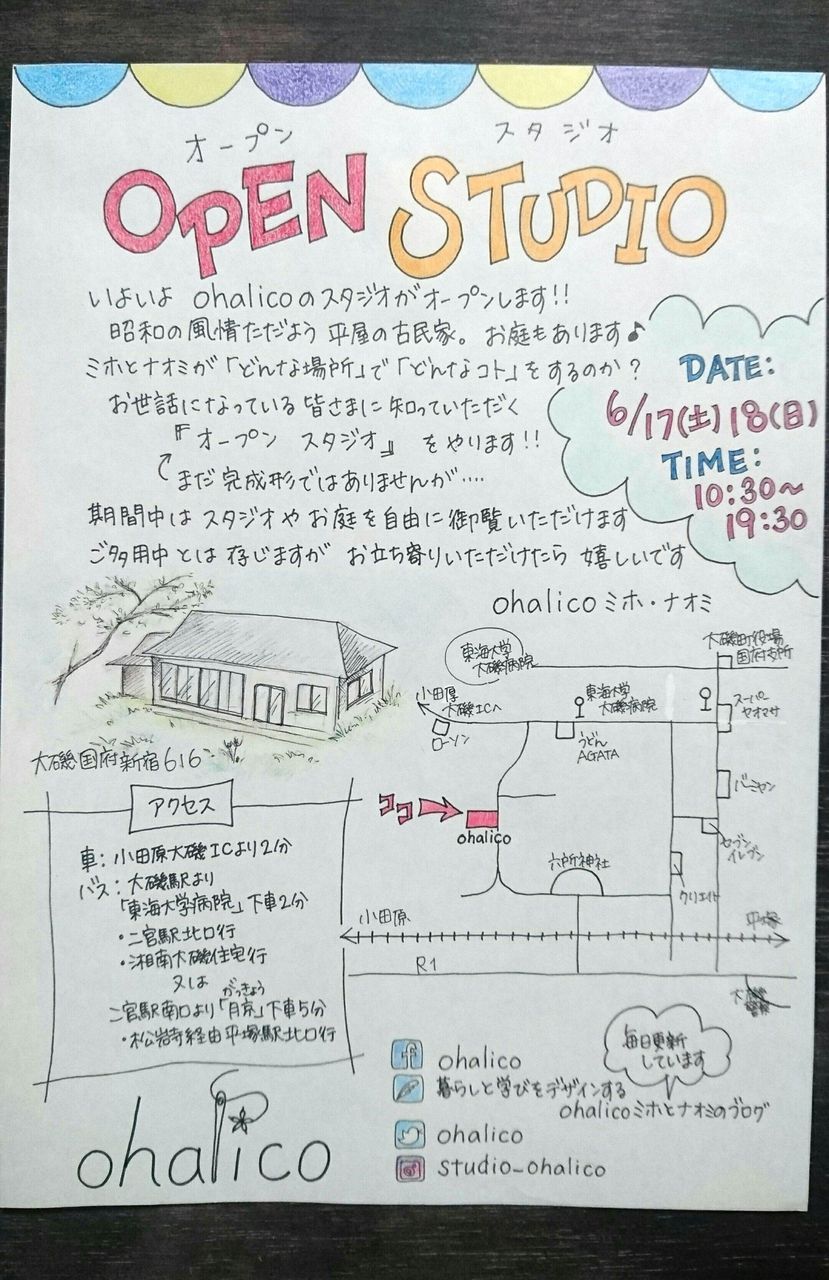 オープン スタジオ
OPEN STUDIO
いよいよ ohalicoのスタジオがオープンします!!
昭和の風情ただよう 平屋の古民家。 お庭もあります♪
ミホとナオミが「どんな場所」で「どんなコト」をするのか?
お世話になっている 皆さまに 知っていただく
『オープン スタジオ』 をやります!!
まだ 完成形ではありませんが‥‥
期間中は スタジオや お庭を自由に 御覧いただけます
ご多用中とは 存じますが お立ち寄りいただけたら 嬉しいです
ohalico ミホ・ナオミ
DATE:
6/17(土)18(日)
TIME:
10:30〜
19:30
大磯国府新宿616
アクセス
車: 小田原大磯ICより2分
バス: 大磯駅より
「東海大学病院」下車2分
・二宮駅北口行
・湘南大磯住宅行
又は
がっきょう
二宮駅南口より「月京」下車5分
・松岩寺経由平塚駅北口行
東海大学
大磯病院
大磯町役場
国府支所
小田厚
大磯ICへ
ローソン
東海大学
大磯病院
うどん
AGATA
スーパー
ヤオマサ
バーミヤン
セブン
イレブン
クリエイト
ココ
ohalico
六所神社
小田原
平塚
R1
ohalico
暮らしと学びをデザインする
ohalicoミホとナオミのブログ
毎日更新
しています
ohalico
studio_ohalico
ohalico